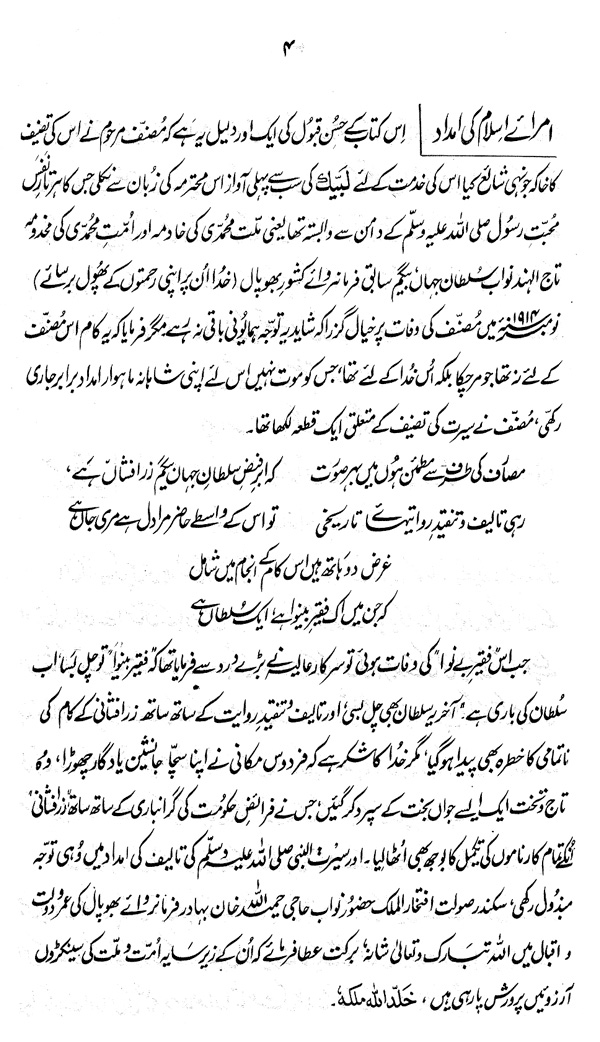 ۴
امرائے اسلام کی امداد اِس کتاب کے حُسنِ قبول کی ایک اور دلیل یہ ہے کہ مُصنّف مرحوم نے اس کی تصنیف
کا خاکہ جونہی شائع کیا اس کی خدمت کے لئے لبّیک کی سب سے پہلی آواز اس محترمہ کی زبان سے نکلی جس کا ہر تارِ نفس
محبّتِ رسول صلی اللہ علیہ وسلّم کے دامن سے وابستہ تھا یعنی ملت محمدی کی خادمہ اور اُمّتِ محمدی کی مخدومہ
تاج الہند نواب سُلطان جہاں بیگم سابق فرمانروائے کشور بھوپال (خدا اُن پر اپنی رحمتوں کے پھول برسائے)
نومبر ۱۹۱۴ء میں مُصنّف کی وفات پر خیال گزرا کہ شاید یہ توجّہ ہمایونی باقی نہ رہے مگر فرمایا کہ یہ کام اس مُصنّف
کے لئے نہ تھا جو مرچکا بلکہ اُس خدا کے لئے تھا، جس کو موت نہیں اس لئے اپنی شاہانہ ماہوار امداد برابر جاری
رکھی، مصنّف نے سیرت کی تصنیف کے متعلق ایک قطعہ لکھا تھا۔
مصارف کی طرف سے مطمئن ہوں میں بہر صورت کہ ابرِ فیضِ سلطانِ جہاں بیگم زر افشاں ہے،
رہی تالیف و تنقید روایتہائے تاریخی تو اس کے واسطے حاضر مرا دل ہے مری جاں ہے
غرض دو ہاتھ ہیں اس کام کے انجام میں شامل
کہ جن میں اک فقیرِ بینوا ہے، ایک سُلطاں ہے
جب اس "فقیر بے نوا" کی وفات ہوئی تو سرکار عالیہ نے بڑے درد سے فرمایا تھا کہ "فقیر بینوا" تو چل بسا، اب
سُلطان کی باری ہے۔ آخر یہ سلطان بھی چل بسی، اور تالیف و تنقیدِ روایت کے ساتھ ساتھ زر افشانی کے کام کی
ناتمامی کا خطرہ بھی پیدا ہوگیا، مگر خدا کا شکر ہے کہ فردوس مکانی نے اپنا سچّا جانشین یادگار چھوڑا، وہ
تاج و تخت ایک ایسے جواں بخت کے سپرد کر گئیں، جس نے فرائضِ حکومت کی گرانباری کے ساتھ ساتھ "زر افشانی"
اُنکے تمام کارناموں کی تکمیل کا بوجھ بھی اُٹھا لیا۔ اور سیرت النبی صلی اللہ علیہ وسلّم کی تالیف کی امداد میں وُہی توجّہ
مبذول رکھی، سکندر صولت افتخار الملک حضور نواب حاجی حمید اللہ خان بہادر فرمانروائے بھوپال کی عمر و دولت
و اقبال میں اللہ تبارک و تعالیٰ شانہٗ برکت عطا فرمائے کہ اُن کے زیرِ سایہ اُمّت و ملّت کی سینکڑوں
آرزوئیں پرورش پا رہی ہیں، خلّد اللّٰہ ملکہٗ۔